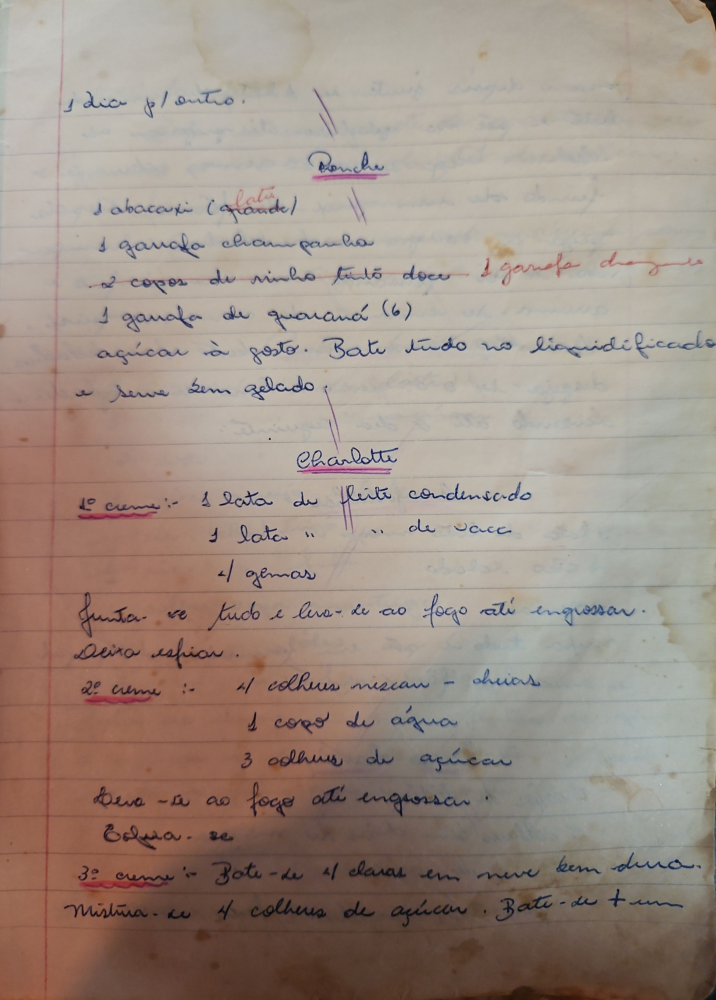 1 dia p/ outro.
Ponche
1 abacaxi (grande) lata
1 garrafa champanha
2 copos de vinho tinto doce 1 garrafa
1 garrafa de guaraná (6)
açúcar à gosto. Bate tudo no liquidificado
e serve bem gelado.
Charlotte
1º creme:- 1 lata de leite condensado
1 lata " " de vaca
4 gemas
Junta-se tudo e leva-se ao fogo até engrossar.
Deixa esfriar.
2º creme :- 4 colheres nescau - cheias
1 copo de água
3 colheres de açúcar
Leva-se ao fogo até engrossar.
3º creme:- Bate-se 4 claras em neve bem dura.
Mistura-se 4 colheres de açúcar. Bate-se + um